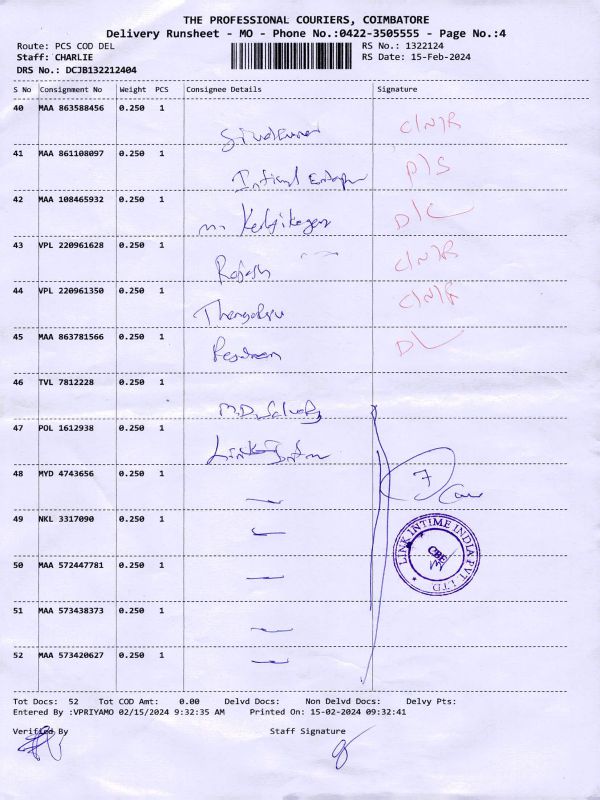 THE PROFESSIONAL COURIERS, COIMBATORE
Delivery Runsheet - MO - Phone No.:0422-3505555 - Page No.:4
Route: PCS COD DEL RS No.: 1322124
Staff: CHARLIE RS Date: 15-Feb-2024
DRS No.: DCJB132212404
S No Consignment No Weight PCS Consignee Details Signature
40 MAA 863588456 0.250 1
C/N/R
41 MAA 861108097 0.250 1
P/S
42 MAA 108465932 0.250 1
D/C
43 VPL 220961628 0.250 1
Rajesh C/N/R
44 VPL 220961350 0.250 1
C/N/R
45 MAA 863781566 0.250 1
46 TVL 7812228 0.250 1
M.D.
47 POL 1612938 0.250 1
Link Intime
48 MYD 4743656 0.250 1
7
49 NKL 3317090 0.250 1
LINK INTIME INDIA PVT. LTD
CBE
50 MAA 572447781 0.250 1
51 MAA 573438373 0.250 1
52 MAA 573420627 0.250 1
Tot Docs: 52 Tot COD Amt: 0.00 Delvd Docs: Non Delvd Docs: Delvy Pts:
Entered By :VPRIYAMO 02/15/2024 9:32:35 AM Printed On: 15-02-2024 09:32:41
Verified By Staff Signature